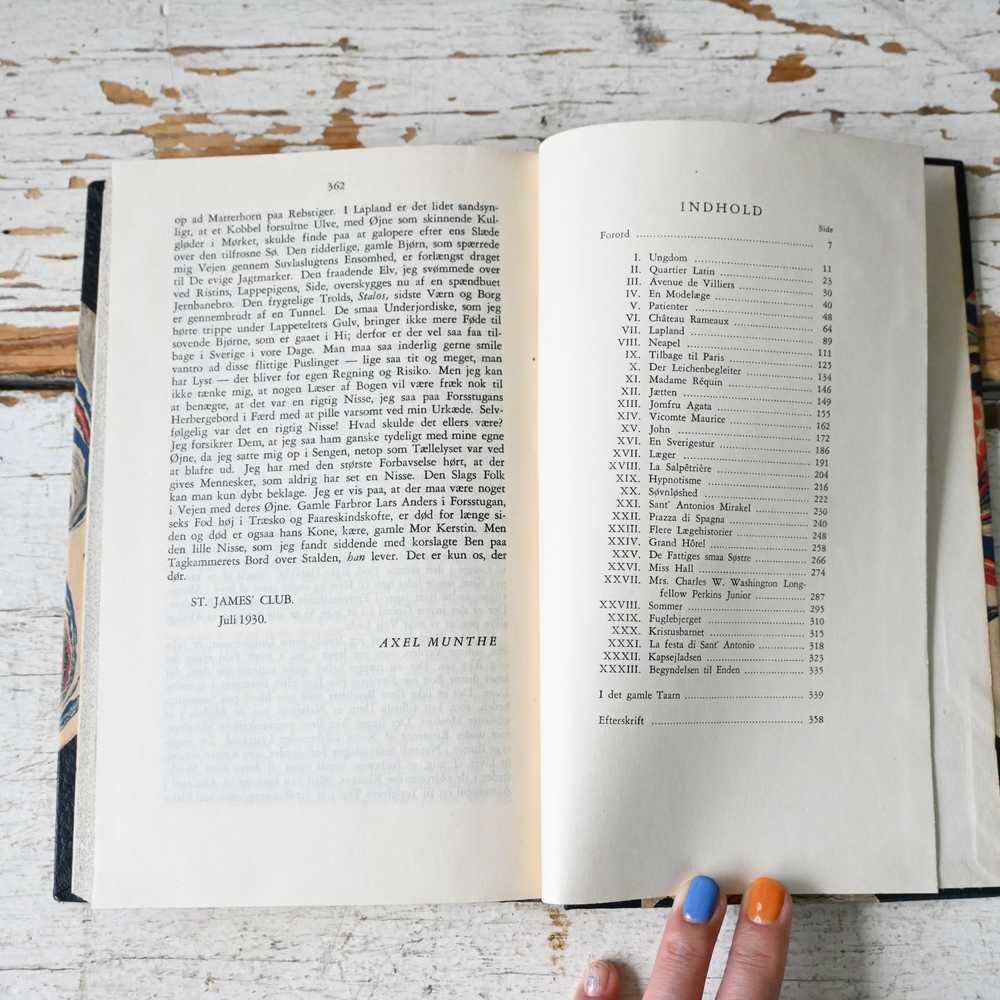 362
op ad Matterhorn paa Rebstiger. I Lapland er det lidet sandsyn-
ligt, at et Kobbel forsultne Ulve, med Øjne som skinnende Kul-
gløder i Mørket, skulde finde paa at galopere efter ens Slæde
over den tilfrosne Sø. Den ridderlige, gamle Bjørn, som spærrede
mig Vejen gennem Suvlaslugtens Ensomhed, er forlængst draget
til De evige Jagtmarker. Den fraadende Elv, jeg svømmede over
ved Ristins, Lappepigens, Side, overskygges nu af en spændbuet
Jernbanebro. Den frygtelige Trolds, Stalos, sidste Værn og Borg
er gennembrudt af en Tunnel. De smaa Underjordiske, som jeg
hørte trippe under Lappeteltets Gulv, bringer ikke mere Føde til
sovende Bjørne, som er gaaet i Hi; derfor er der vel saa faa til-
bage i Sverige i vore Dage. Man maa saa inderlig gerne smile
vantro ad disse flittige Puslinger — lige saa tit og meget, man
har Lyst — det bliver for egen Regning og Risiko. Men jeg kan
ikke tænke mig, at nogen Læser af Bogen vil være fræk nok til
at benægte, at det var en rigtig Nisse, jeg saa paa Forsstugans
Herbergebord i Færd med at pille varsomt ved min Urkæde. Selv-
følgelig var det en rigtig Nisse! Hvad skulde det ellers være?
Jeg forsikrer Dem, at jeg saa ham ganske tydeligt med mine egne
Øjne, da jeg satte mig op i Sengen, netop som Tællelyset var ved
at blafre ud. Jeg har med den største Forbavselse hørt, at der
gives Mennesker, som aldrig har set en Nisse. Den Slags Folk
kan man kun dybt beklage. Jeg er vis paa, at der maa være noget
i Vejen med deres Øjne. Gamle Farbror Lars Anders i Forsstugan,
seks Fod høj i Træsko og Faareskindskofte, er død for længe si-
den og død er ogsaa hans Kone, kære, gamle Mor Kerstin. Men
den lille Nisse, som jeg fandt siddende med korslagte Ben paa
Tagkammerets Bord over Stalden, han lever. Det er kun os, der
dør.
ST. JAMES' CLUB.
Juli 1930.
AXEL MUNTHE
INDHOLD
Side
Forord 7
I. Ungdom 11
II. Quartier Latin 23
III. Avenue de Villiers 30
IV. En Modelæge 40
V. Patienter 48
VI. Château Rameaux 64
VII. Lapland 89
VIII. Neapel 111
IX. Tilbage til Paris 125
X. Der Leichenbegleiter 134
XI. Madame Réquin 146
XII. Jætten 149
XIII. Jomfru Agata 155
XIV. Vicomte Maurice 162
XV. John 172
XVI. En Sverigestur 186
XVII. Læger 191
XVIII. La Salpêtrière 204
XIX. Hypnotisme 216
XX. Søvnløshed 222
XXI. Sant' Antonios Mirakel 230
XXII. Piazza di Spagna 240
XXIII. Flere Lægehistorier 248
XXIV. Grand Hôtel 258
XXV. De Fattiges smaa Søstre 266
XXVI. Miss Hall 274
XXVII. Mrs. Charles W. Washington Long-
fellow Perkins Junior 287
XXVIII. Sommer 295
XXIX. Fuglebjerget 310
XXX. Kristusbarnet 315
XXXI. La festa di Sant' Antonio 318
XXXII. Kapsejladsen 323
XXXIII. Begyndelsen til Enden 335
I det gamle Taarn 339
Efterskrift 358